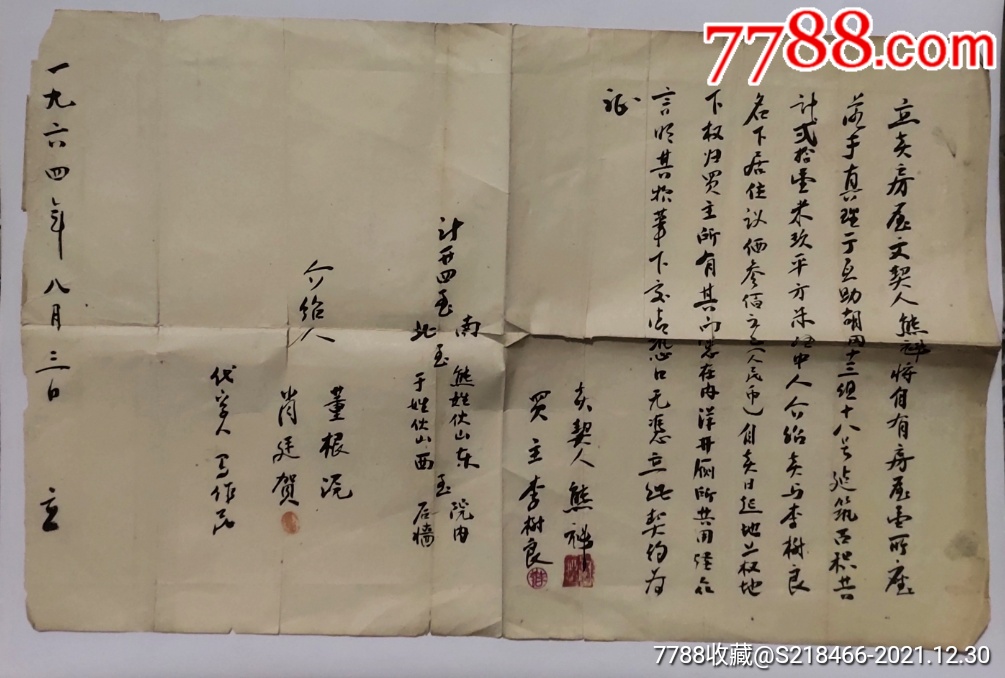 7788.com
立卖房屋文契人熊祥将自有房屋壹所座
落于真理厅互助胡同十三组十八号建筑面积共
计弍拾壹米玖平方米经中人介绍卖与李树良
名下居住议价叁佰元（人民币）自卖日起地上权地
下权归买主所有其门窗在内洋井厕所共同
言明共拾笔下交清恐口无凭立此契约为
证
卖契人 熊祥
买主 李树良
计开四至
南 熊姓伙山东至院内
北至于姓伙山西 后墙
介绍人
董根
肖廷贺
代笔人
一九六四年八月三日 立
7788收藏@S218466-2021.12.30